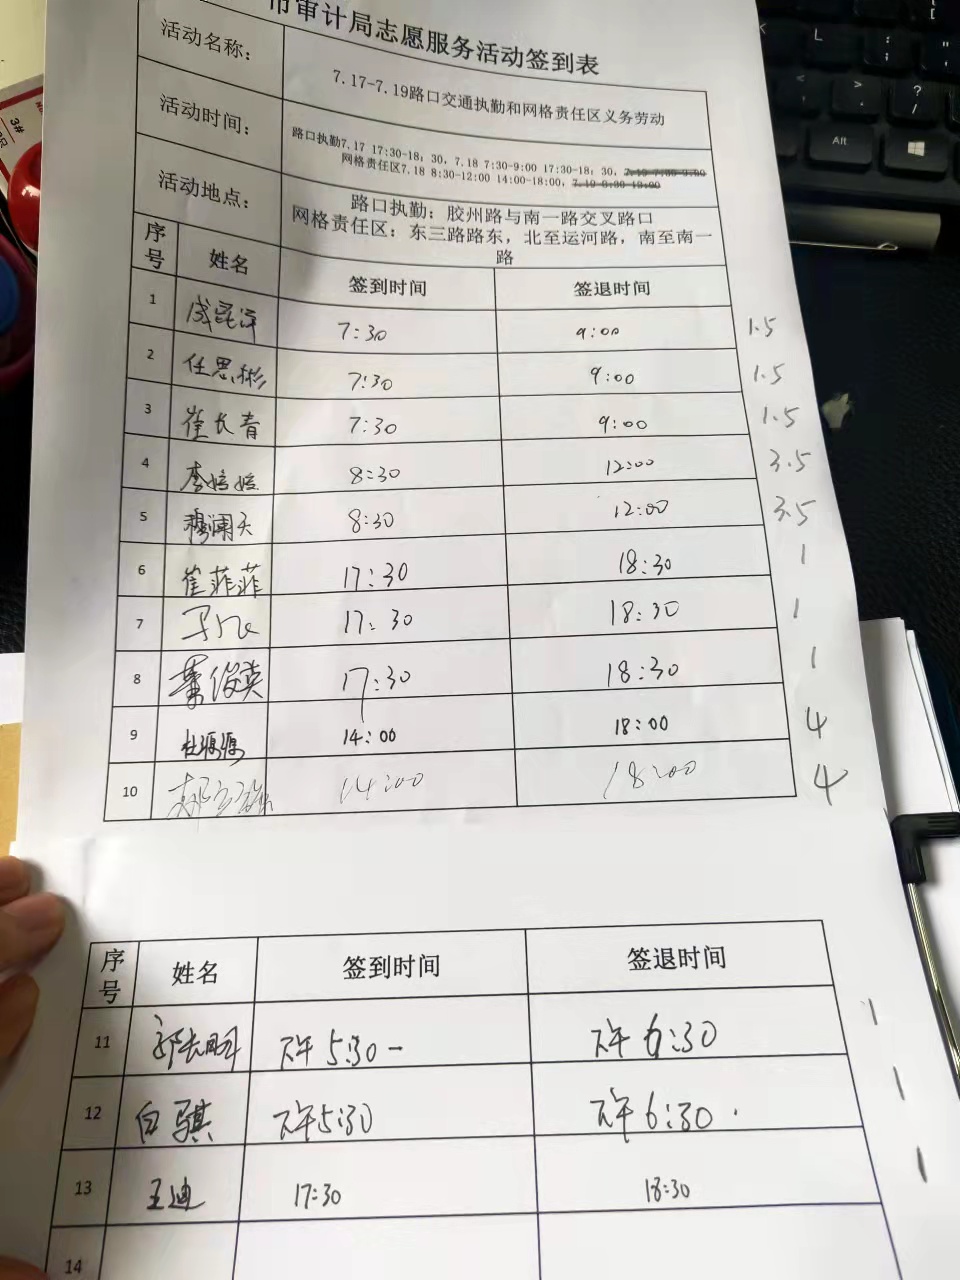 市审计局志愿服务活动签到表
活动名称：
7.17-7.19路口交通执勤和网格责任区义务劳动
活动时间：
路口执勤7.17 17:30-18：30，7.18 7:30-9:00 17:30-18：30，7.19 7:30-9:00
网格责任区7.18 8:30-12:00 14:00-18:00，7.19 8:30-12:00
活动地点：
路口执勤：胶州路与南一路交叉路口
网格责任区：东三路路东，北至运河路，南至南一
路
序号 姓名 签到时间 签退时间
1 7:30 9:00 1.5
2 任思彬 7:30 9:00 1.5
3 崔长青 7:30 9:00 1.5
4 李婷婷 8:30 12:00 3.5
5 穆澜天 8:30 12:00 3.5
6 崔菲菲 17:30 18:30 1
7 17:30 18:30 1
8 董俊英 17:30 18:30 1
9 杜源源 14:00 18:00 4
10 14:00 18:00 4
序号 姓名 签到时间 签退时间
11 下午5:30- 下午6:30 1
12 白骐 下午5:30 下午6:30. 1
13 王迪 17:30 18:30 1
14
3#
L
Alt